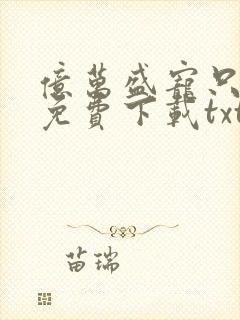 億萬盛寵只
免費下載txt
苗瑞